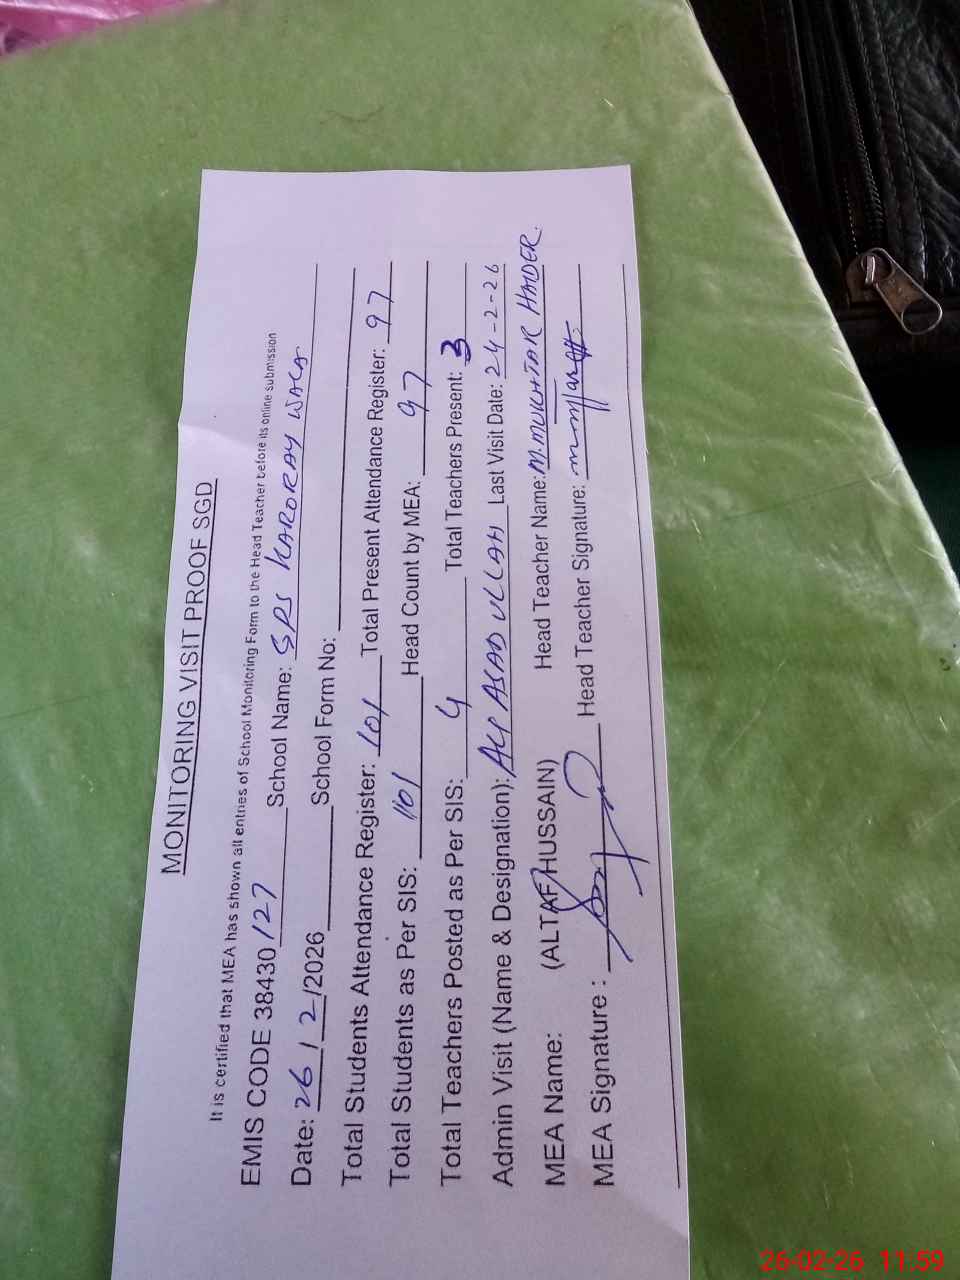 MONITORING VISIT PROOF SGD
It is certified that MEA has shown all entries of School Monitoring Form to the Head Teacher before its online submission
EMIS CODE 38430127 School Name: GPS KARORAY WALA
Date: 26/2/2026 School Form No:
Total Students Attendance Register: 101 Total Present Attendance Register: 97
Total Students as Per SIS: 101 Head Count by MEA: 97
Total Teachers Posted as Per SIS: 4 Total Teachers Present: 3
Admin Visit (Name & Designation): ASAD ULLAH Last Visit Date: 24-2-26
MEA Name: (ALTAF HUSSAIN) Head Teacher Name: M. MUKHTAR HAIDER.
MEA Signature : Head Teacher Signature:
26-02-26 11:59